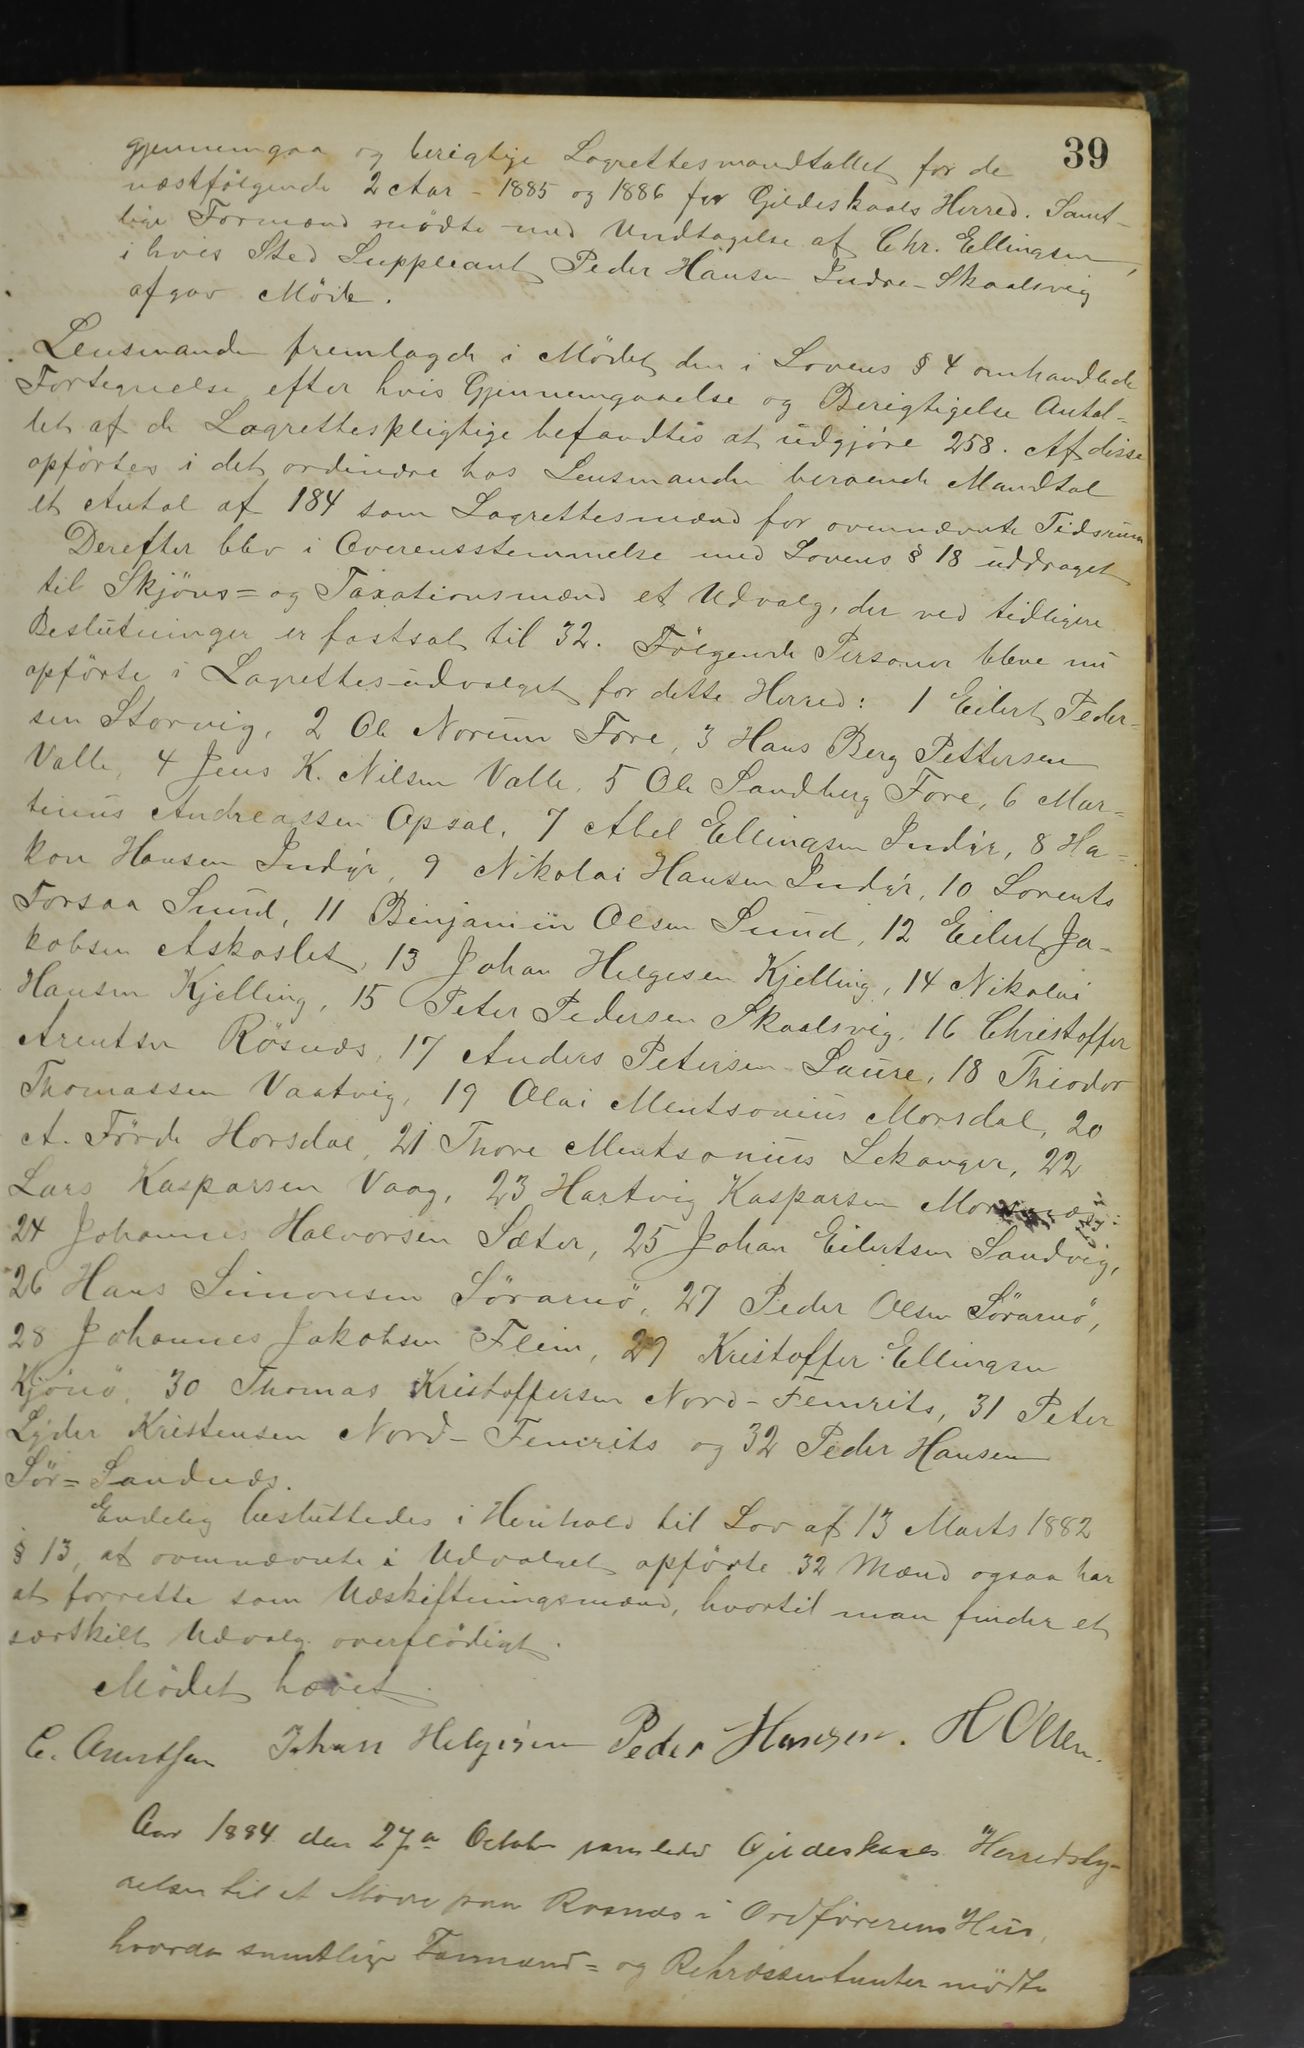 39
gjennemgaa og berigtige Lagrettesmandtallet for de
næstfølgende 2 Aar - 1885 og 1886 for Gildeskaals Herred. Samt-
lige Formænd mødte med Undtagelse af Chr. Ellingsen,
i hvis Sted Suppleant Peder Hansen Indre-Skaalsvig
afgav Møde.
Lensmanden fremlagde i Mødet den i Lovens § 4 omhandlede
Fortegnelse efter hvis Gjennemgaaelse og Berigtigelse Antal-
let af de Lagrettespligtige befandtes at udgjøre 258. Af disse
opførtes i det ordinære hos Lensmanden beroende Mandtal
et Antal af 184 som Lagrettesmænd for ovennævnte Tidsrum
Derefter blev i Overensstemmelse med Lovens § 18 uddraget
til Skjøns= og Taxationsmænd et Udvalg, der ved tidligere
Beslutninger er fastsat til 32. Følgende Personer bleve nu
opførte i Lagrettesudvalget for dette Herred: 1 Eilert Peder-
sen Storvig, 2 Ole Norum Fore, 3 Hans Berg Pettersen
Valle, 4 Jens K. Nilsen Valle, 5 Ole Sandberg Fore, 6 Mar-
tinus Andreassen Opsal, 7 Abel Ellingsen Indyr, 8 Ha-
kon Hansen Indyr, 9 Nikolai Hansen Indyr, 10 Lorents
Forsaa Sund, 11 Benjamin Olsen Sund, 12 Eilert Ja-
kobsen Askaslet, 13 Johan Helgesen Kjelling, 14 Nikolai
Hansen Kjelling, 15 Peter Pedersen Skaalsvig, 16 Christoffer
Arentsen Røsnæs, 17 Anders Petersen Laure, 18 Theodor
Thomassen Vaatvig, 19 Olai Mentsonius Morsdal, 20
A. Førde Horsdal, 21 Thore Mentsonius Lekanger, 22
Lars Kasparsen Vaag, 23 Hartvig Kasparsen
24 Johannes Halvorsen Sæter, 25 Johan Eilertsen Sandvig,
26 Hans Simonsen Sørarnø, 27 Peder Olsen Sørarnø,
28 Johannes Jakobsen Flein, 29 Kristoffer Ellingsen
Kjønø, 30 Thomas Kristoffersen Nord-Femrits, 31 Peter
Lyder Kristensen Nord-Femrits og 32 Peder Hansen
Sør=Sandnæs.
Endelig besluttedes i Henhold til Lov af 13 Marts 1882
§ 13, at ovennævnte i Udvalget opførte 32 Mænd ogsaa har
at forrette som Udskiftningsmænd, hvortil man finder et
særskilt Udvalg overflødigt.
Mødet hævet.
C. Arentsen Johan Helgesen Peder Hansen. H Olsen.
Aar 1884 den 27de October samledes Gildeskaals Herredsby-
relse til et Møde paa Rosnæs i Ordførerens Hus,
hvorda samtlige Formænd= og Rehræssentanter mødte